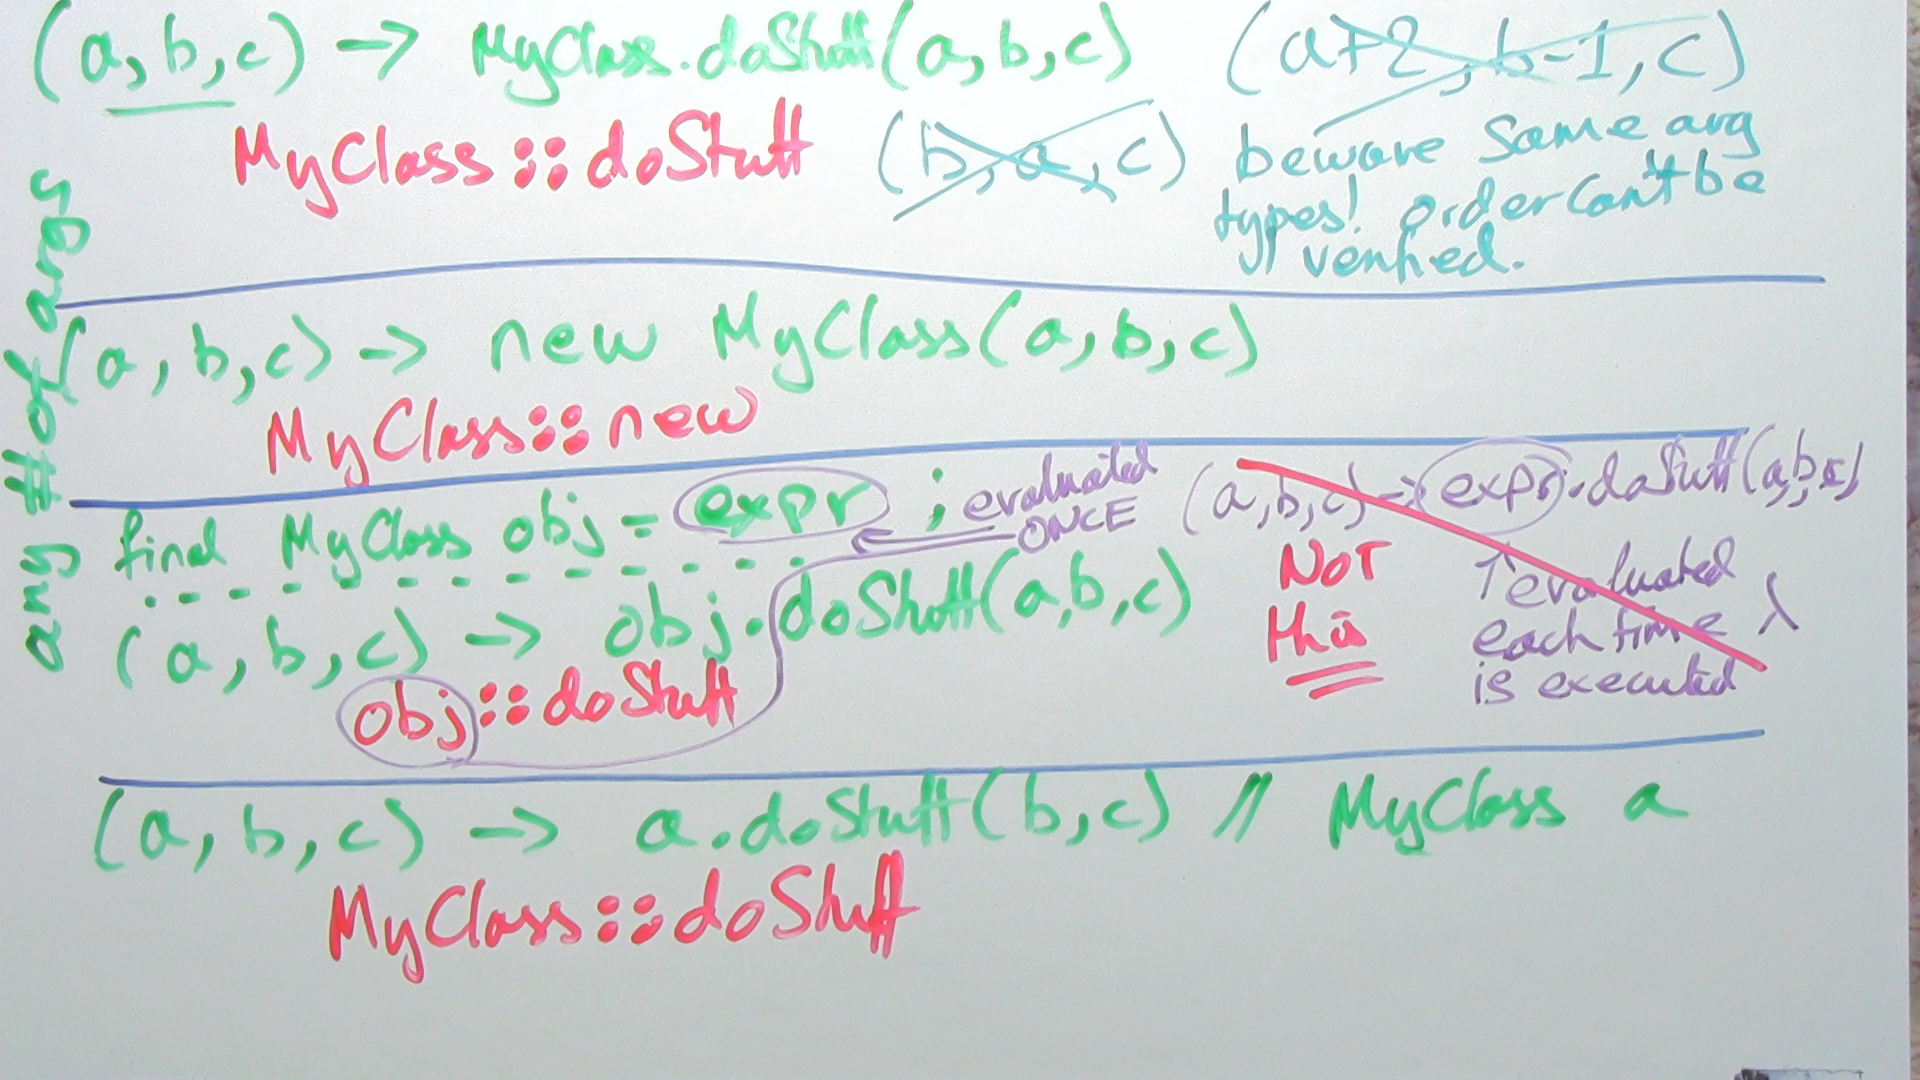 (a, b, c) -> MyClass.doStuff(a, b, c)
(a+2, b-1, c)
MyClass::doStuff
(b, a, c)
beware same arg
types! order can't be
verified.
any # of args
(a, b, c) -> new MyClass(a, b, c)
MyClass::new
final MyClass obj = expr ;
evaluated
ONCE
(a, b, c) -> obj.doStuff(a, b, c)
obj::doStuff
(a, b, c) -> expr.doStuff(a, b, c)
NOT
this
↑ evaluated
each time λ
is executed
(a, b, c) -> a.doStuff(b, c) // MyClass a
MyClass::doStuff